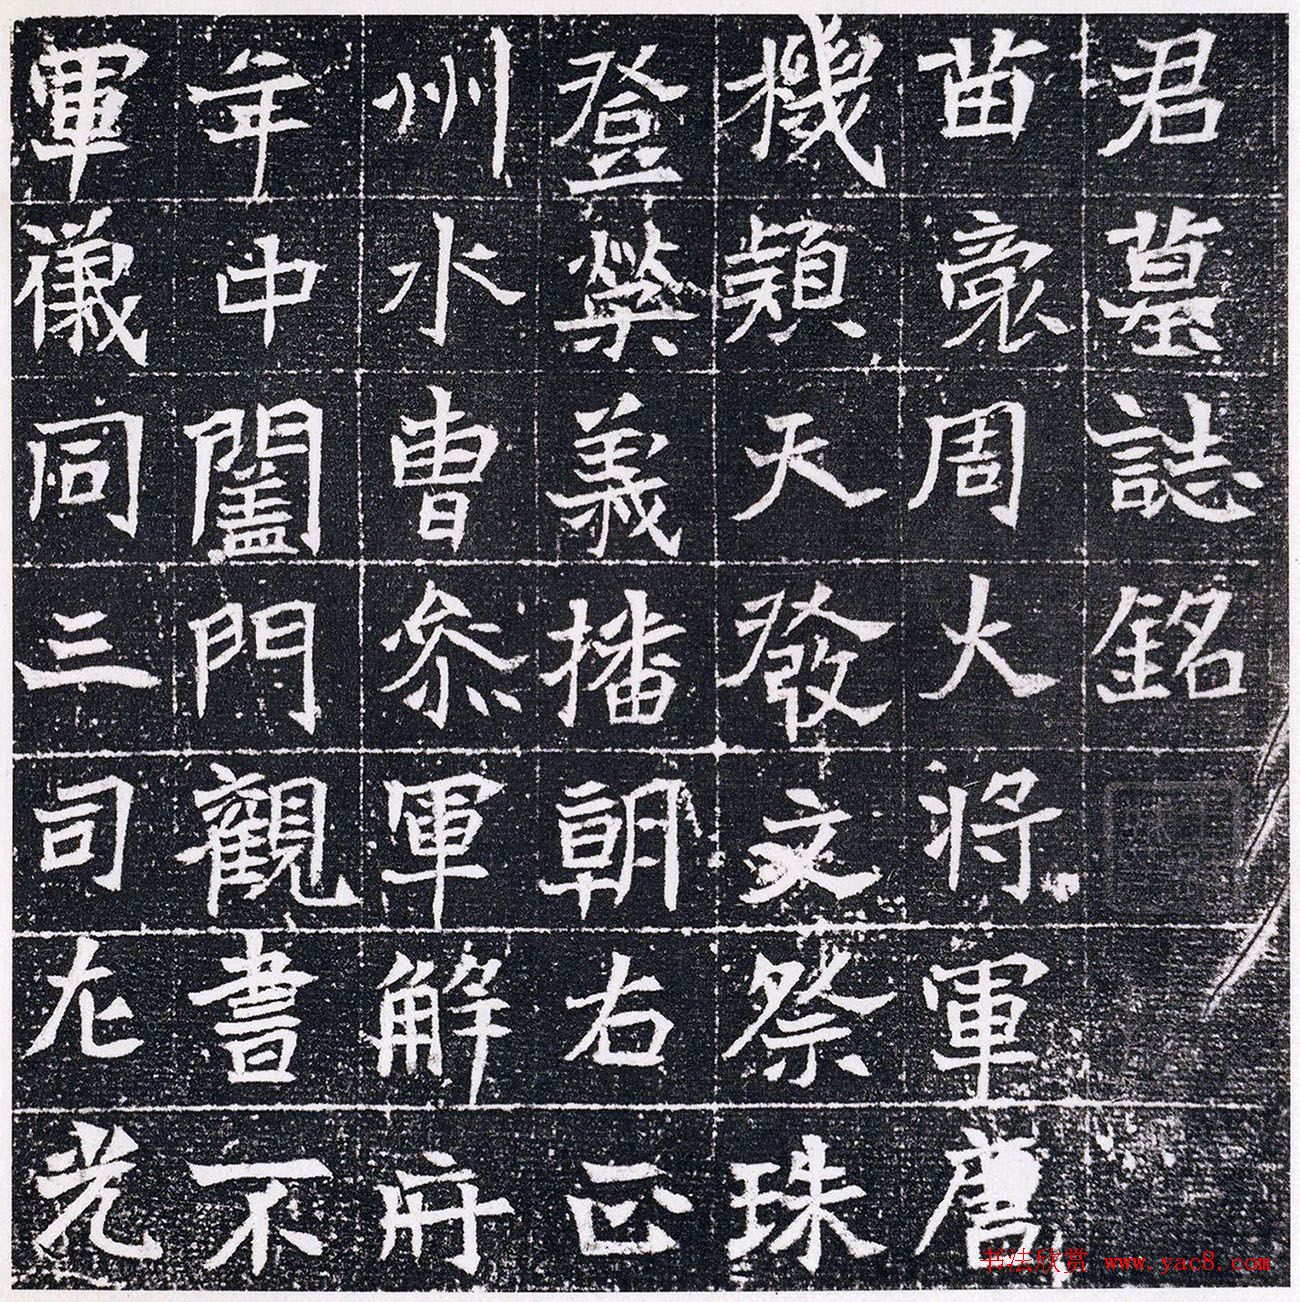 君墓誌銘
苗裔周大将軍唐
機穎天發文祭珠
登榮義播朝右正
州水曹参軍解府
年中闔門觀書不
軍儀同三司左光
书法欣赏 www.yac8.com